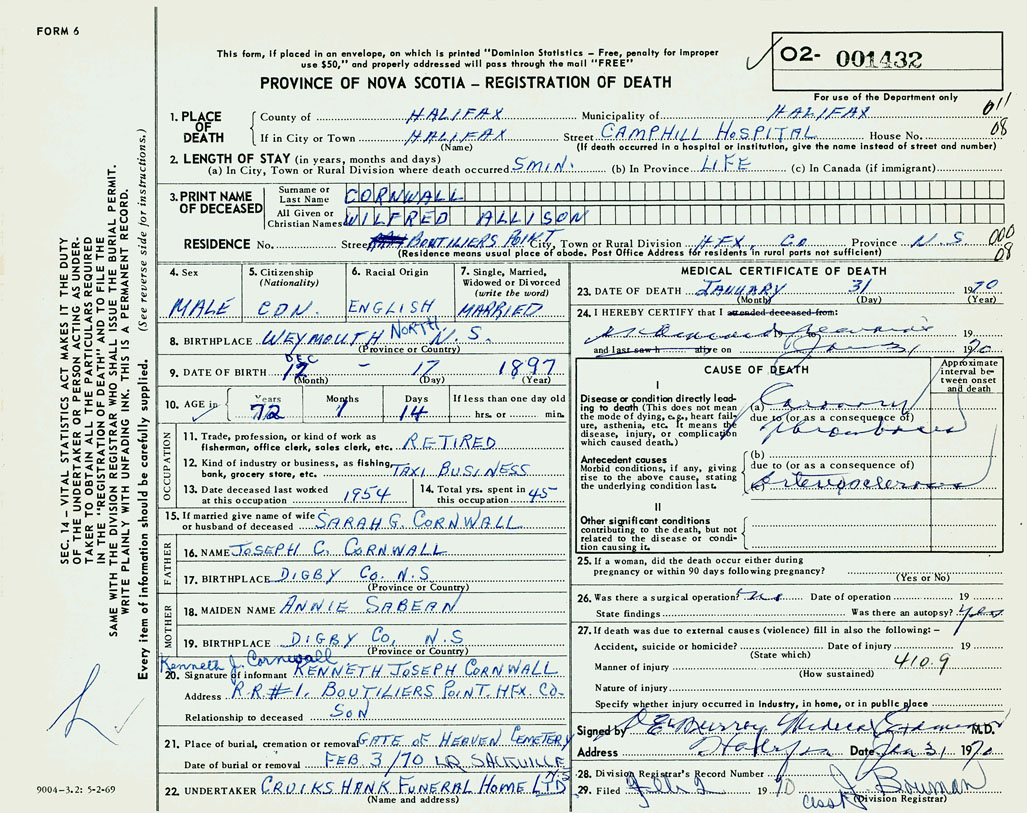 FORM 6
This form, if placed in an envelope, on which is printed "Dominion Statistics – Free, penalty for improper
use $50," and properly addressed will pass through the mail "FREE"
PROVINCE OF NOVA SCOTIA – REGISTRATION OF DEATH
02- 001432
For use of the Department only
011
08
1. PLACE OF DEATH
County of HALIFAX Municipality of HALIFAX
If in City or Town HALIFAX Street CAMPHILL HOSPITAL House No.
(Name) (If death occurred in a hospital or institution, give the name instead of street and number)
2. LENGTH OF STAY (in years, months and days)
(a) In City, Town or Rural Division where death occurred 5 MIN. (b) In Province LIFE (c) In Canada (if immigrant)
3. PRINT NAME OF DECEASED
Surname or Last Name CORNWALL
All Given or Christian Names WILFRED ALLISON
RESIDENCE No. Street BOUTILIERS POINT City, Town or Rural Division HFX. CO. Province N.S
(Residence means usual place of abode. Post Office Address for residents in rural parts not sufficient)
000
08
4. Sex
MALE
5. Citizenship
(Nationality)
CDN.
6. Racial Origin
ENGLISH
7. Single, Married,
Widowed or Divorced
(write the word)
MARRIED
8. BIRTHPLACE WEYMOUTH NORTH N.S.
(Province or Country)
9. DATE OF BIRTH DEC 12 – 17 1897
(Month) (Day) (Year)
10. AGE in Years Months Days If less than one day old
72 1 14 hrs. or min.
OCCUPATION
11. Trade, profession, or kind of work as
fisherman, office clerk, sales clerk, etc. RETIRED
12. Kind of industry or business, as fishing,
bank, grocery store, etc. TAXI BUSINESS
13. Date deceased last worked
at this occupation 1954
14. Total yrs. spent in
this occupation 45
15. If married give name of wife
or husband of deceased SARAH G. CORNWALL
FATHER
16. NAME JOSEPH C. CORNWALL
17. BIRTHPLACE DIGBY CO. N.S
(Province or Country)
MOTHER
18. MAIDEN NAME ANNIE SABEAN
19. BIRTHPLACE DIGBY CO, N.S
(Province or Country)
Kenneth J. Cornwall
20. Signature of informant KENNETH JOSEPH CORNWALL
Address R.R.#1. BOUTILIERS POINT, HFX. CO.
Relationship to deceased SON
21. Place of burial, cremation or removal GATE OF HEAVEN CEMETERY
Date of burial or removal FEB 3/70 LR. SACKVILLE N.S
22. UNDERTAKER CRUIKSHANK FUNERAL HOME LTD
(Name and address)
MEDICAL CERTIFICATE OF DEATH
23. DATE OF DEATH JANUARY 31 1970
(Month) (Day) (Year)
24. I HEREBY CERTIFY that I attended deceased from:
to 19
and last saw h alive on Jan 31 1970
CAUSE OF DEATH
Approximate
interval be-
tween onset
and death
I
Disease or condition directly lead-
ing to death (This does not
mean the mode of dying, e.g., heart fail-
ure, asthenia, etc. It means the
disease, injury, or complication
which caused death.)
(a) Coronary
due to (or as a consequence of)
Thrombosis
Antecedent causes
Morbid conditions, if any, giving
rise to the above cause, stating
the underlying condition last.
(b)
due to (or as a consequence of)
(c) Arteriosclerosis
II
Other significant conditions
contributing to the death, but not
related to the disease or condi-
tion causing it.
25. If a woman, did the death occur either during
pregnancy or within 90 days following pregnancy?
(Yes or No)
26. Was there a surgical operation? no Date of operation 19
State findings Was there an autopsy? yes
27. If death was due to external causes (violence) fill in also the following: –
Accident, suicide or homicide? Date of injury 19
(State which)
Manner of injury 410.9
(How sustained)
Nature of injury
Specify whether injury occurred in Industry, in home, or in public place
Signed by Murray Medical Examiner M.D.
Address Halifax Date Jan 31 1970
28. Division Registrar's Record Number
29. Filed Feb 2 1970 J Bowman
(Division Registrar)
SEC. 14 – VITAL STATISTICS ACT MAKES IT THE DUTY
OF THE UNDERTAKER OR PERSON ACTING AS UNDER-
TAKER TO OBTAIN ALL THE PARTICULARS REQUIRED
IN THE "REGISTRATION OF DEATH" AND TO FILE THE
SAME WITH THE DIVISION REGISTRAR WHO SHALL ISSUE THE BURIAL PERMIT.
WRITE PLAINLY WITH UNFADING INK. THIS IS A PERMANENT RECORD.
Every item of information should be carefully supplied. (See reverse side for instructions.)
9004-3.2: 5-2-69